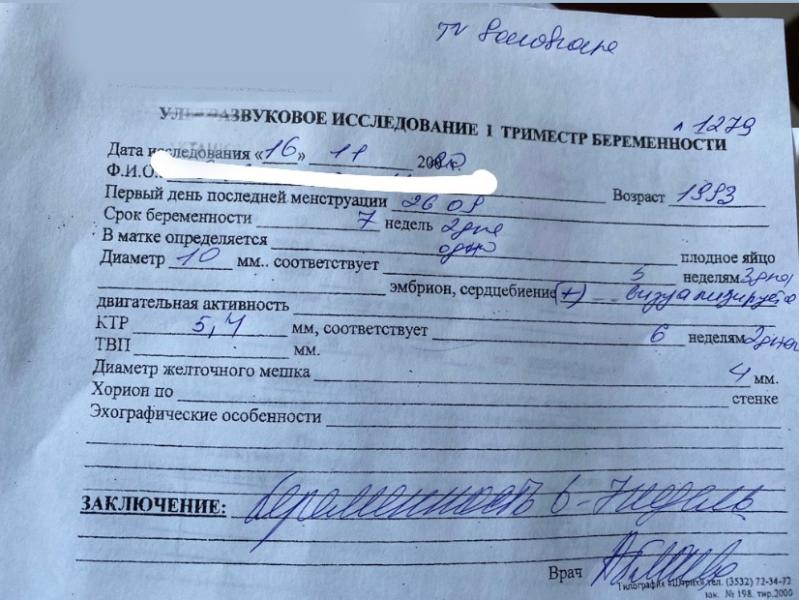 TV
УЛЬТРАЗВУКОВОЕ ИССЛЕДОВАНИЕ I ТРИМЕСТР БЕРЕМЕННОСТИ
1279
Дата исследования «16» 11 200 г.
Ф.И.О.
Возраст 1993
Первый день последней менструации 26 09
Срок беременности 7 недель 2дня
В матке определяется одно плодное яйцо
Диаметр 10 мм.. соответствует 5 неделям 3дня
эмбрион, сердцебиение (+) визуализируется
двигательная активность
КТР 5,4 мм, соответствует 6 неделям 2дня
ТВП мм.
Диаметр желточного мешка 4 мм.
Хорион по стенке
Эхографические особенности
ЗАКЛЮЧЕНИЕ: Беременность 6-7недель
Врач
Типография тел. (3532) 72-34-72
зак. № 198. тир.2000